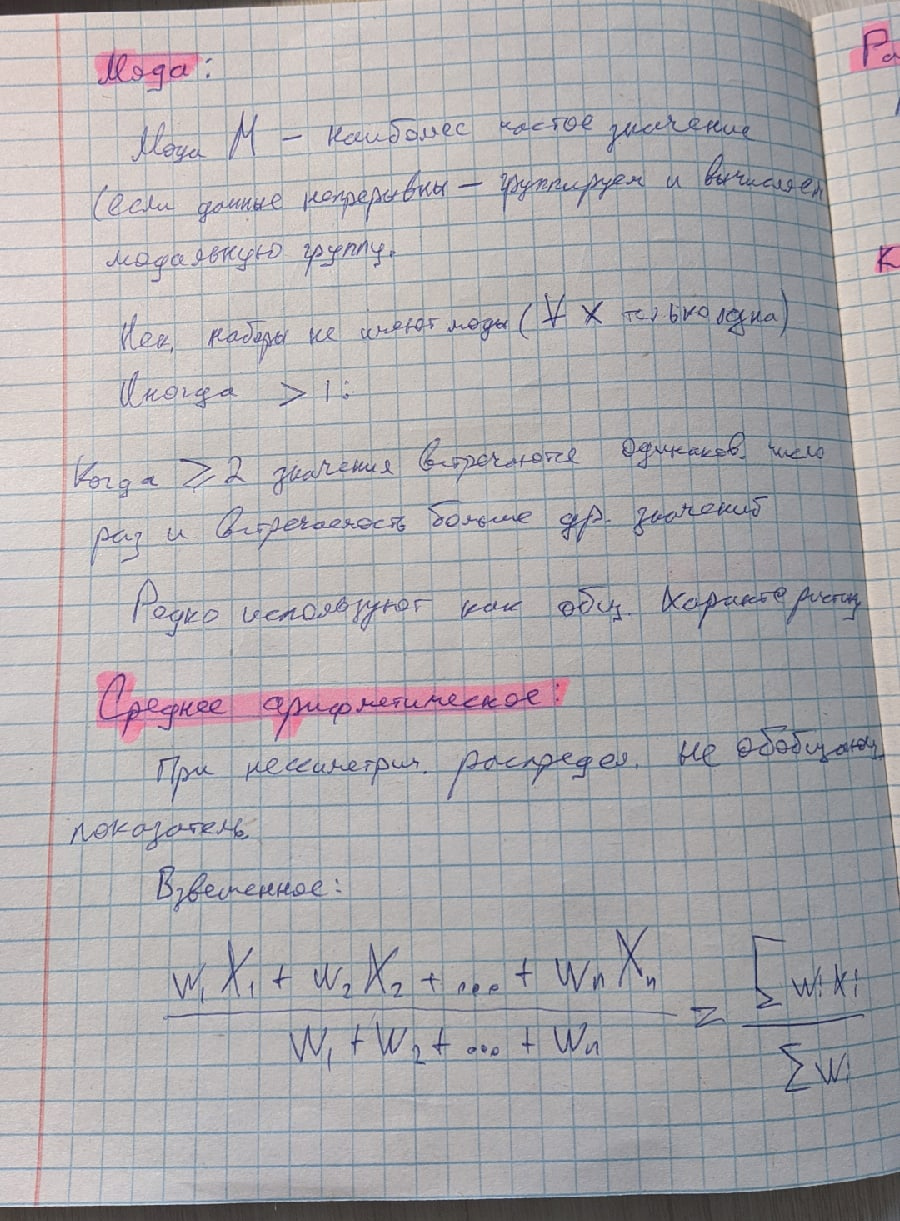 Мода:
Мода M – наиболее частое значение
(если данные непрерывны – группируем и вычисляем
модальную группу.
Нек. наборы не имеют моды (∀ x только одна)
Иногда > 1:
Когда ≥ 2 значения встречаются одинаков. число
раз и встречаемость больше др. значений
Редко используют как общ. характеристику
Среднее арифметическое:
При нессиметрич. распредел. не обобщающ.
показатель.
Взвешенное:
w₁X₁ + w₂X₂ + ... + wₙXₙ / w₁ + w₂ + ... + wₙ = ∑ wᵢxᵢ / ∑ wᵢ
Ра
К